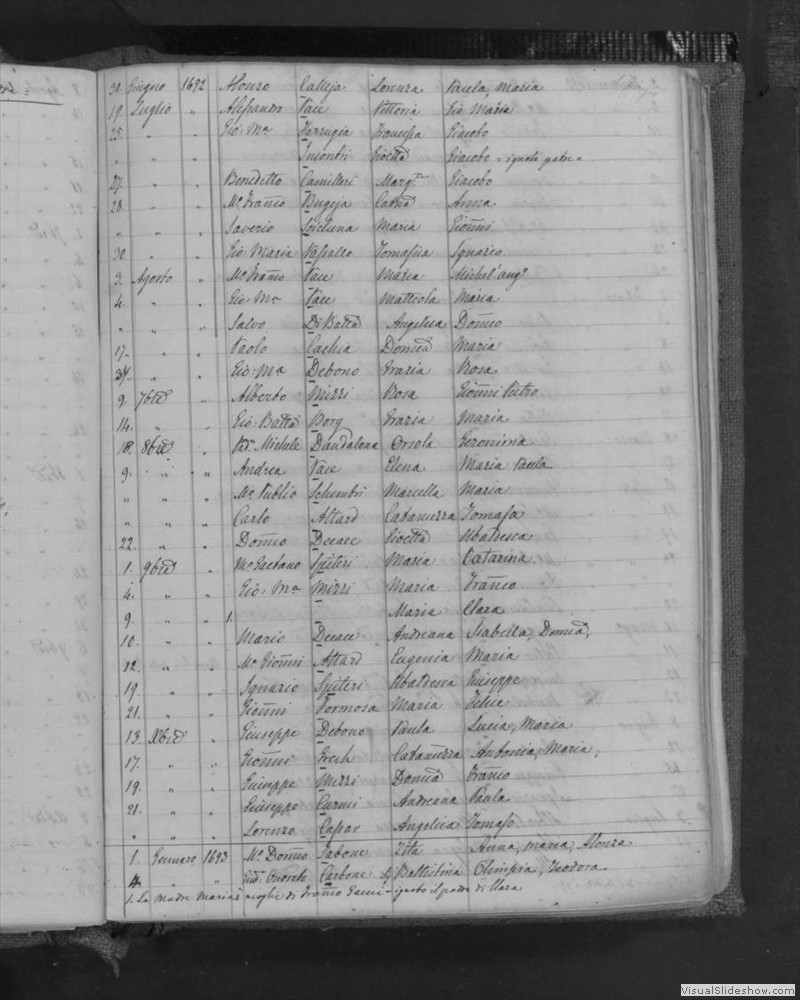 30. Giugno 1692 Alonzo Calleja Lorenza Paula, Maria
19. Luglio " Alessandro Pace Vittoria Gio Maria
25. " " Gio: Ma Farrugia Francesca Giacobo
" " " Gioetta Giacobo = ignoto padre =
27. " " Benedetto Camilleri Marga Giacobo
28. " " Mo Franco Bugeja Catna Anna
" " " Saverio Scicluna Maria Gionni
30. " " Gio: Maria Vassallo Tomasia Ignazio
3. Agosto " Mo Franco Pace Maria Michel'ango
4. " " Gio: Ma Pace Matteola Maria
" " " Salvo Di Batta Angelica Domco
17. " " Paolo Cachia Domca Maria
" " Gio: Ma Debono Grazia Rosa
9. 7bre " Alberto Mizzi Rosa Gionni Pietro
14. " " Gio: Batta Borg Grazia Maria
18. 8bre " Michele Dandalona Orsola Geronima
9. " " Andrea Pace Elena Maria Paula
" " " Mo Publio Schembri Marcella Maria
" " " Carlo Attard Catanuzza Tomasa
22. " " Domco Gioetta Ubaldesca
1. 9bre " Mo Gaetano Spiteri Maria Catarina
4. " " Gio: Ma Mizzi Maria Franco
9. " " 1. - - Maria Clara
10. " " Mario Andreana Isabella, Domca,
12. " " Mo Gionni Attard Eugenia Maria
19 " " Ignazio Spiteri Ubaldesca Giuseppe
21. " " Gionni Formosa Maria Felice
13. Xbre " Giuseppe Debono Paula Lucia, Maria
17. " " Gionni Grech Catanuzza Antonia, Maria,
19. " " Giuseppe Mizzi Domca Franco
21. " " Giuseppe Curmi Andreana Paula
" " " Lorenzo Caspar Angelica Tomaso
1. Gennaro 1693 Mo Domco Zabone Itta Anna, Maria, Alonza
4. " " Onorato Carbone Battistina Olimpia, Teodora.
1. La Madre Maria è moglie di Franco - ignoto il padre di Clara
VisualSlideshow.com